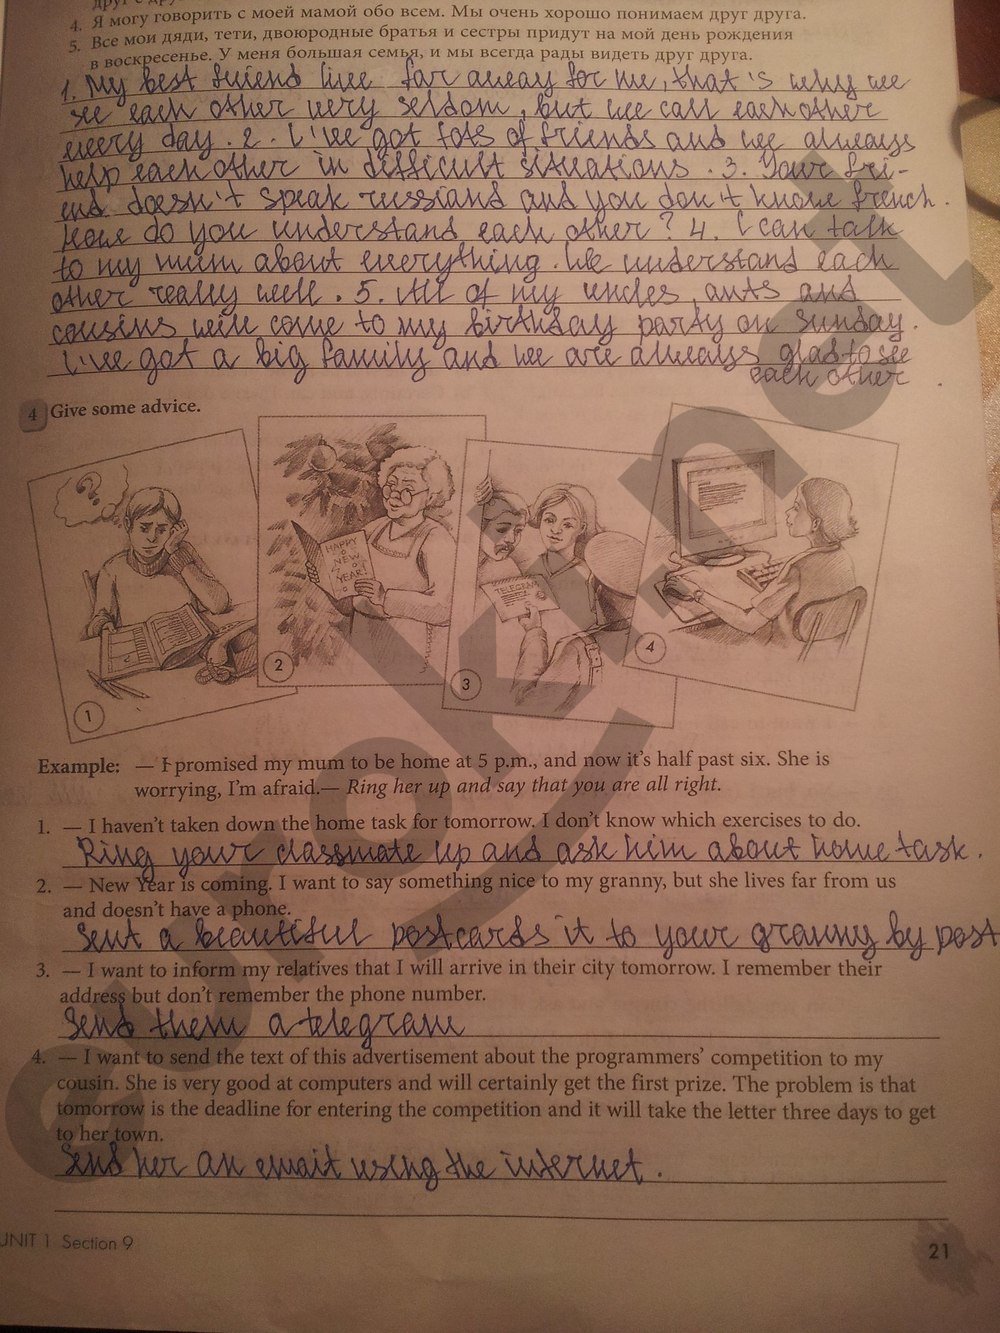 друг с дру
4. Я могу говорить с моей мамой обо всем. Мы очень хорошо понимаем друг друга.
5. Все мои дяди, тети, двоюродные братья и сестры придут на мой день рождения
в воскресенье. У меня большая семья, и мы всегда рады видеть друг друга.
1. My best friend live far away for me, that's why we
see each other very seldom, but we call each other
every day. 2. I've got lots of friends and we always
help each other in difficult situations. 3. Your fri-
end doesn't speak russiand and you don't know french.
How do you understand each other? 4. I can talk
to my mum about everything. We understand each
other really well. 5. All of my uncles, ants and
cousins will come to my birthday party on Sunday.
I've got a big family and we are always glad to see
each other.
4 Give some advice.
?
HAPPY
NEW
YEAR!
TELEGRAM
1
2
3
4
Example: — I promised my mum to be home at 5 p.m., and now it's half past six. She is
worrying, I'm afraid.— Ring her up and say that you are all right.
1. — I haven't taken down the home task for tomorrow. I don't know which exercises to do.
Ring your classmate up and ask him about home task.
2. — New Year is coming. I want to say something nice to my granny, but she lives far from us
and doesn't have a phone.
Sent a beautiful postcards it to your granny by post
3. — I want to inform my relatives that I will arrive in their city tomorrow. I remember their
address but don't remember the phone number.
Send them a telegram
4. — I want to send the text of this advertisement about the programmers' competition to my
cousin. She is very good at computers and will certainly get the first prize. The problem is that
tomorrow is the deadline for entering the competition and it will take the letter three days to get
to her town.
Send her an email using the internet.
UNIT 1 Section 9
21
eurokinet